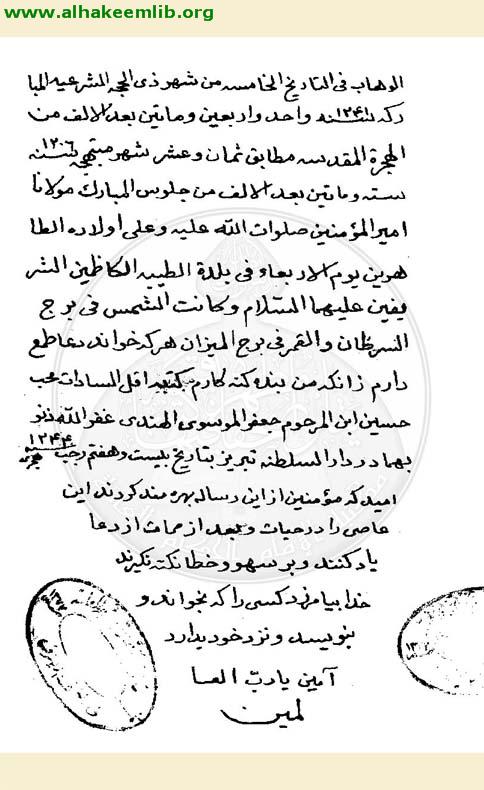 www.alhakeemlib.org
الوهاب فى التاريخ الخامسه من شهر ذى الحجه الشرعيه المبا
ركه سنه ١٢٤١ واحد واربعين وماتين بعد الالف من
الهجرة المقدسه مطابق ثمان وعشر شهر سنه ١٢٠٦
سته وماتين بعد الالف من جلوس المبارك مولانا
امير المؤمنين صلوات الله عليه وعلى اولاده الطا
هرين يوم الاربعاء فى بلدة الطيبه الكاظمين الشر
يفين عليهما السلام وكانت الشمس فى برج
السرطان والقمر فى برج الميزان هركه خواند دعا طمع
دارم زانكه من بنده كنه كارم كتبه اقل السادات محب
حسين ابن المرحوم جعفر الموسوى الهندى غفر الله ذنو
بهما در دار السلطنه تبريز بتاريخ بيست وهفتم رجب سنه ١٢٤٤
اميد كه مؤمنين از اين رساله بهره مند كردند اين
عاصى را در حيات وبعد از ممات از دعا
ياد كنند وبر سهو وخطا نكته نكيرند
خدا بيامرزد كسى را كه بخواند و
بنويسد ونزد خود بدارد
آمين يا رب العا
لمين